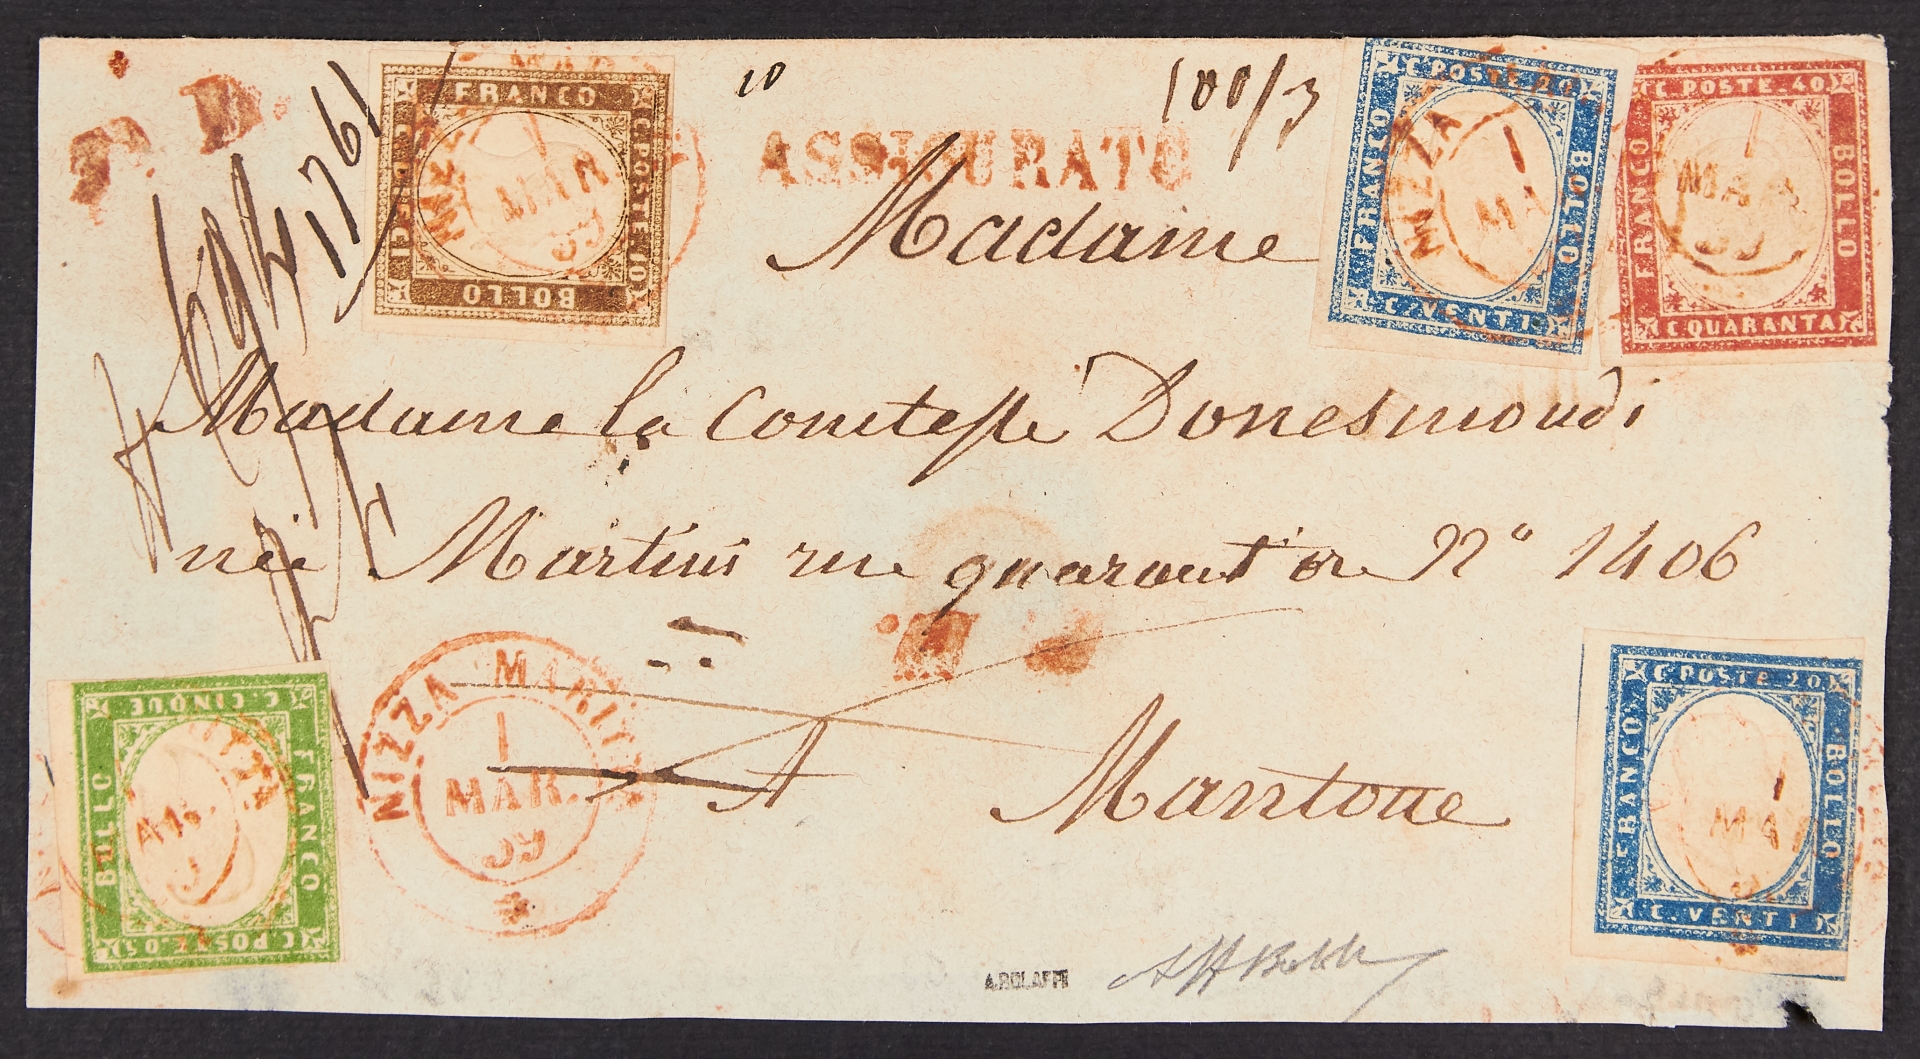 P. D.
1761
10
ASSICURATO
100/3
FRANCO
C. POSTE 10
BOLLO
C. DIECI
C. POSTE 20
FRANCO
BOLLO
C. VENTI
C. POSTE 40
FRANCO
BOLLO
C. QUARANTA
NIZZA
1
MAR
59
Madame
Madame la Comtesse Donesmondi
née Martini rue quarant'ore No 1406
A Mantoue
NIZZA MARITT
1
MAR.
59
C. CINQUE
FRANCO
BOLLO
C. POSTE. 05
C. POSTE 20
FRANCO
BOLLO
C. VENTI
1
MA
A. BOLAFFI